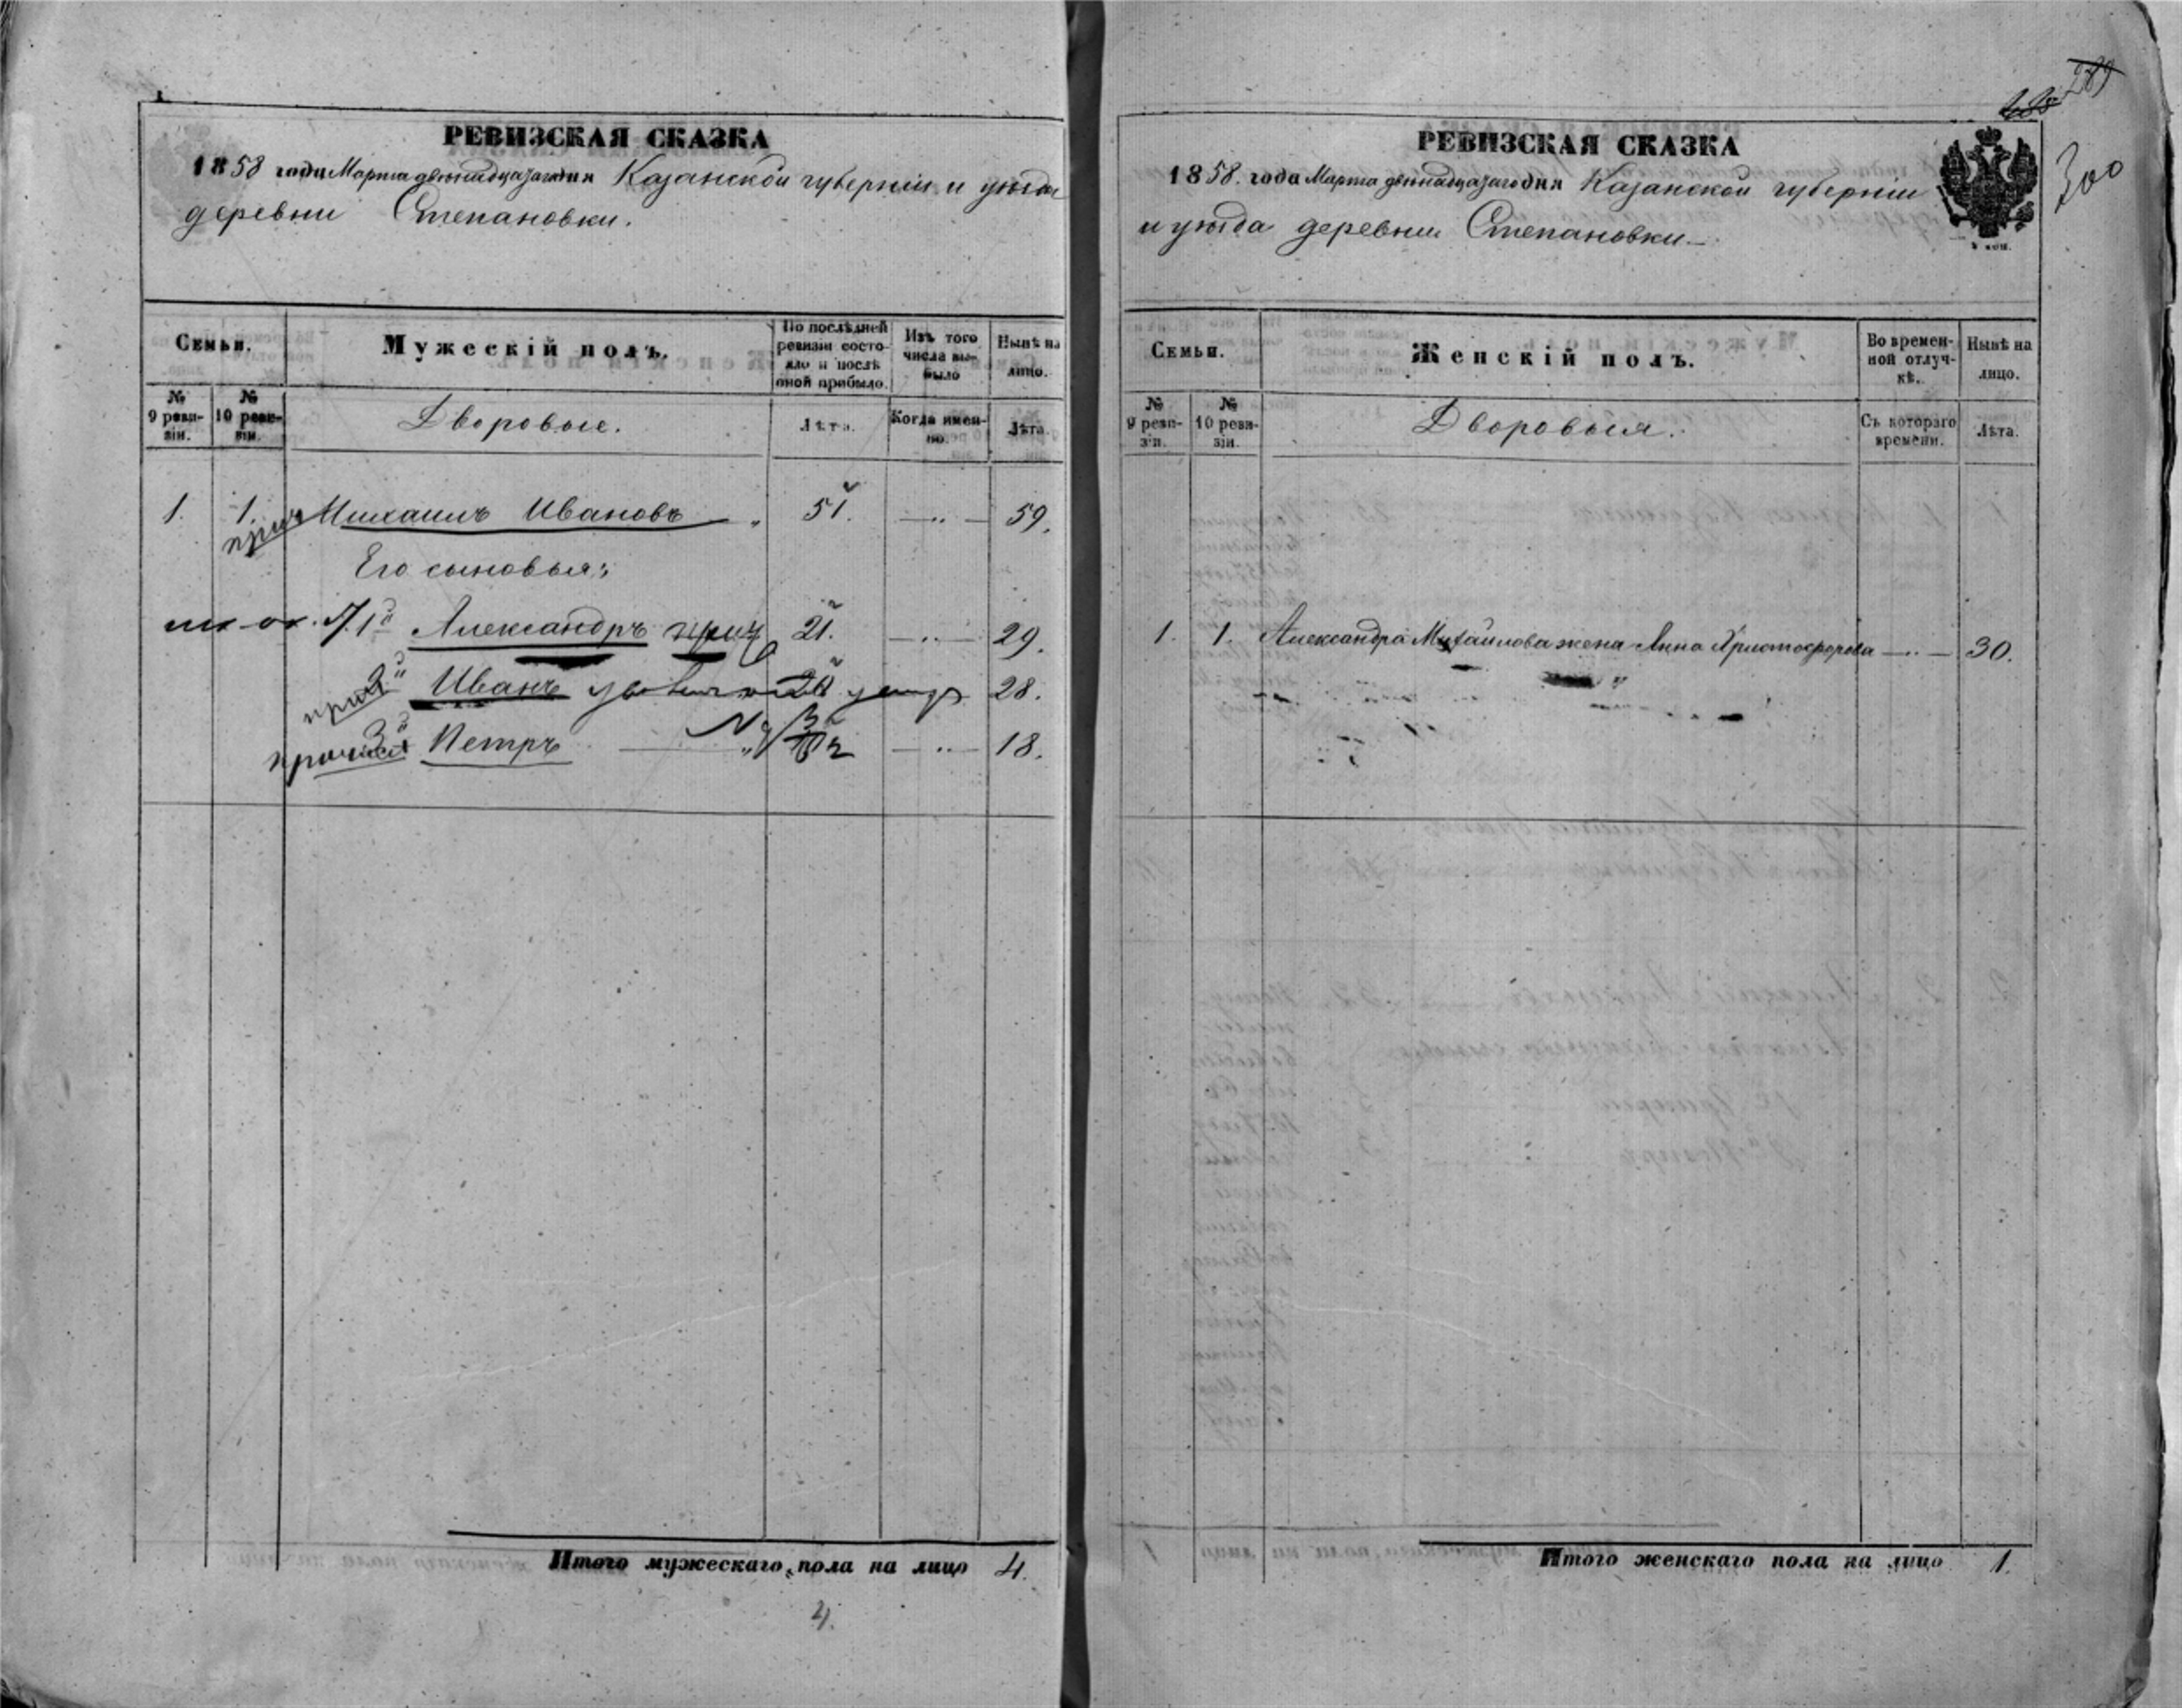 РЕВИЗСКАЯ СКАЗКА
1858 года Марта двенадцатаго дня Казанской губерніи и уѣзда
деревни Степановки.
Семьи.
Мужескій полъ.
По послѣдней ревизіи состояло и послѣ оной прибыло.
Изъ того числа выбыло
Нынѣ на лицо.
№ 9 ревизіи.
№ 10 ревизіи.
Дворовые.
Лѣта.
Когда именно.
Лѣта.
1. 1. Михаилъ Ивановъ 51. 59.
Его сыновья:
1й Александръ 21. 29.
2й Иванъ 20 28.
3й Петръ 18.
Итого мужескаго пола на лицо 4.
4.
289
300
РЕВИЗСКАЯ СКАЗКА
1858. года Марта двенадцатаго дня Казанской губерніи
и уѣзда деревни Степановки
4 коп.
Семьи.
Женскій полъ.
Во временной отлучкѣ.
Нынѣ на лицо.
№ 9 ревизіи.
№ 10 ревизіи.
Дворовыя.
Съ котораго времени.
Лѣта.
1. 1. Александра Михайлова жена Анна Христофорова 30.
Итого женскаго пола на лицо 1.